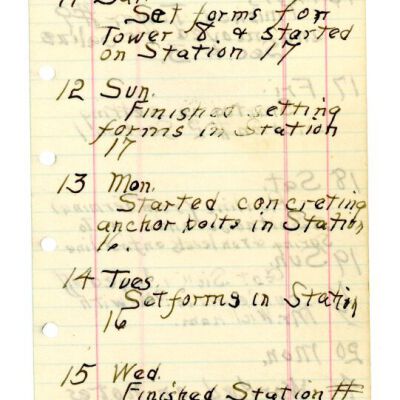 Set forms for
Tower 8 & started
on Station 17
12 Sun.
Finished setting
forms in Station
17
13 Mon.
Started concreting
anchor bolts in Station
16.
14 Tues
Set forms in Station
16
15 Wed.
Finished Station #